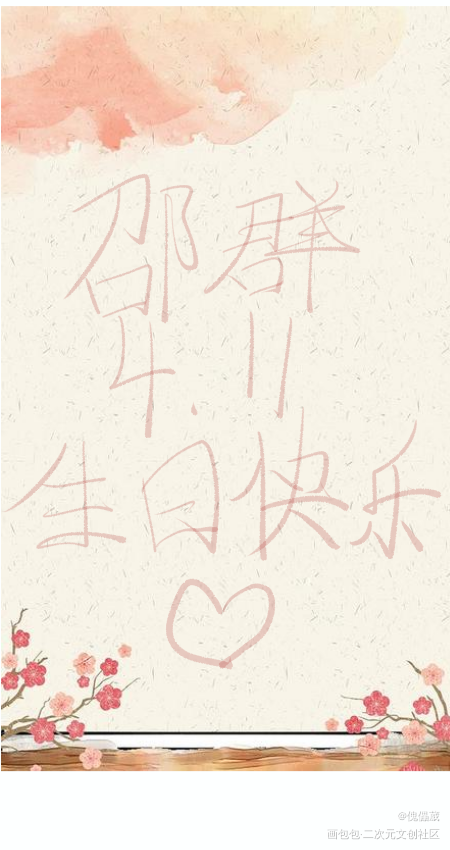 邵群
4.11
生日快乐
@傀儡葳
画包包·二次元文创社区